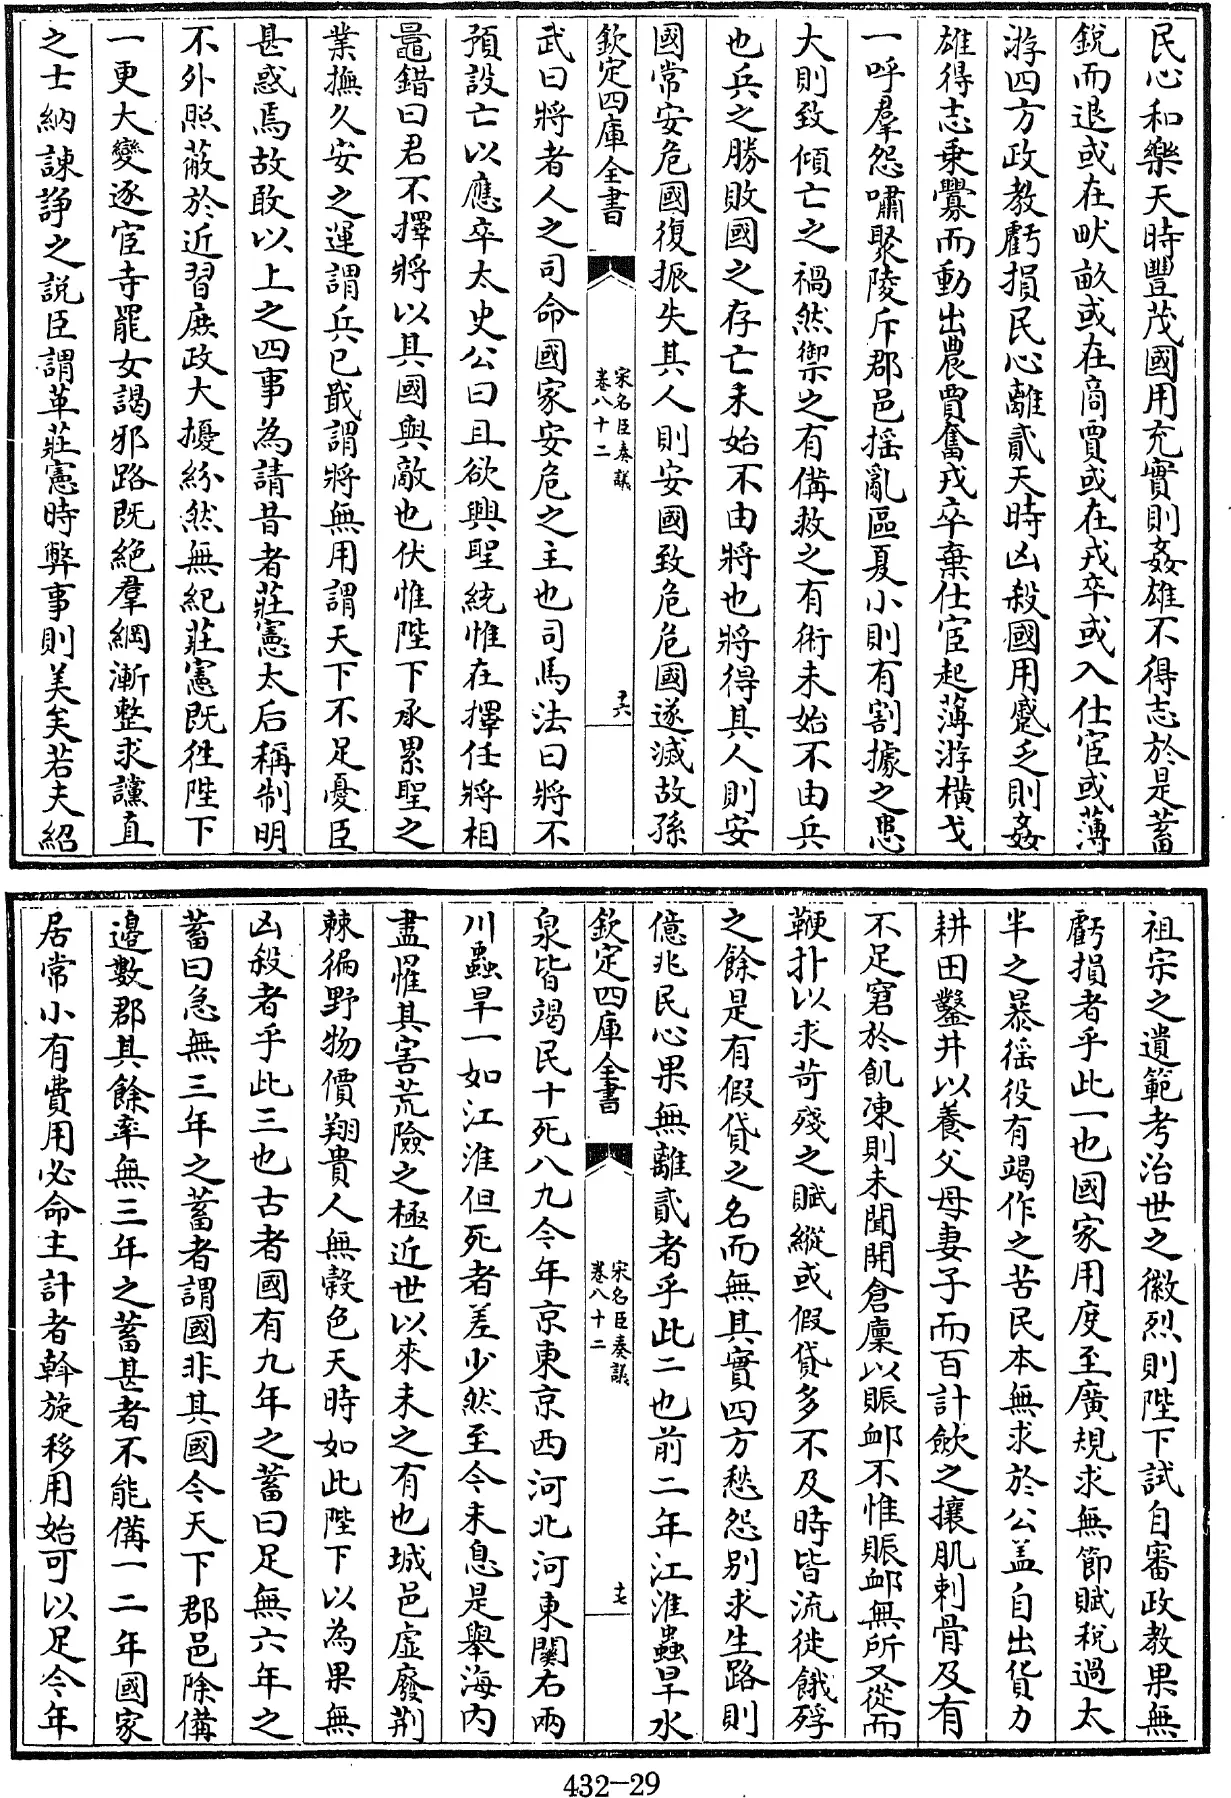 民心和樂天時豐茂國用充實則姦雄不得志於是蓄
銳而退或在畎畝或在商賈或在戎卒或入仕宦或薄
游四方政教虧損民心離貳天時凶殺國用蹙乏則姦
雄得志乗釁而動出農賈奮戎卒棄仕宦起薄游橫戈
一呼羣怨嘯聚陵斥郡邑揺亂區夏小則有割據之患
大則致傾亡之禍然禦之有備救之有術未始不由兵
也兵之勝敗國之存亡未始不由將也將得其人則安
國常安危國復振失其人則安國致危危國遂滅故孫
欽定四庫全書
宋名臣奏議
卷八十二
十六
武曰將者人之司命國家安危之主也司馬法曰將不
預設亡以應卒太史公曰且欲興聖統惟在擇任將相
鼂錯曰君不擇將以其國與敵也伏惟陛下承累聖之
業撫久安之運謂兵已戢謂將無用謂天下不足憂臣
甚惑焉故敢以上之四事為請昔者莊憲太后稱制明
不外照蔽於近習庶政大擾紛然無紀莊憲既徃陛下
一更大變逐宦寺罷女謁邪路既絶羣綱漸整求讜直
之士納諫諍之説臣謂革莊憲時弊事則美矣若夫紹
祖宗之遺範考治世之徽烈則陛下試自審政教果無
虧損者乎此一也國家用度至廣規求無節賦稅過太
半之暴徭役有竭作之苦民本無求於公盖自出貨力
耕田鑿井以養父母妻子而百計歛之攘肌剌骨及有
不足窘於飢凍則未聞開倉廩以賑䘏不惟賑䘏無所又從而
鞭扑以求苛殘之賦縱或假貸多不及時皆流徙餓殍
之餘是有假貸之名而無其實四方愁怨别求生路則
億兆民心果無離貳者乎此二也前二年江淮蟲旱水
欽定四庫全書
宋名臣奏議
卷八十二
十七
泉皆竭民十死八九今年京東京西河北河東關右兩
川蟲旱一如江淮但死者差少然至今未息是舉海内
盡罹其害荒險之極近世以來未之有也城邑虚廢荆
棘徧野物價翔貴人無榖色天時如此陛下以為果無
凶殺者乎此三也古者國有九年之蓄曰足無六年之
蓄曰急無三年之蓄者謂國非其國今天下郡邑除備
邊數郡其餘率無三年之蓄甚者不能備一二年國家
居常小有費用必命主計者斡旋移用始可以足今年
432-29